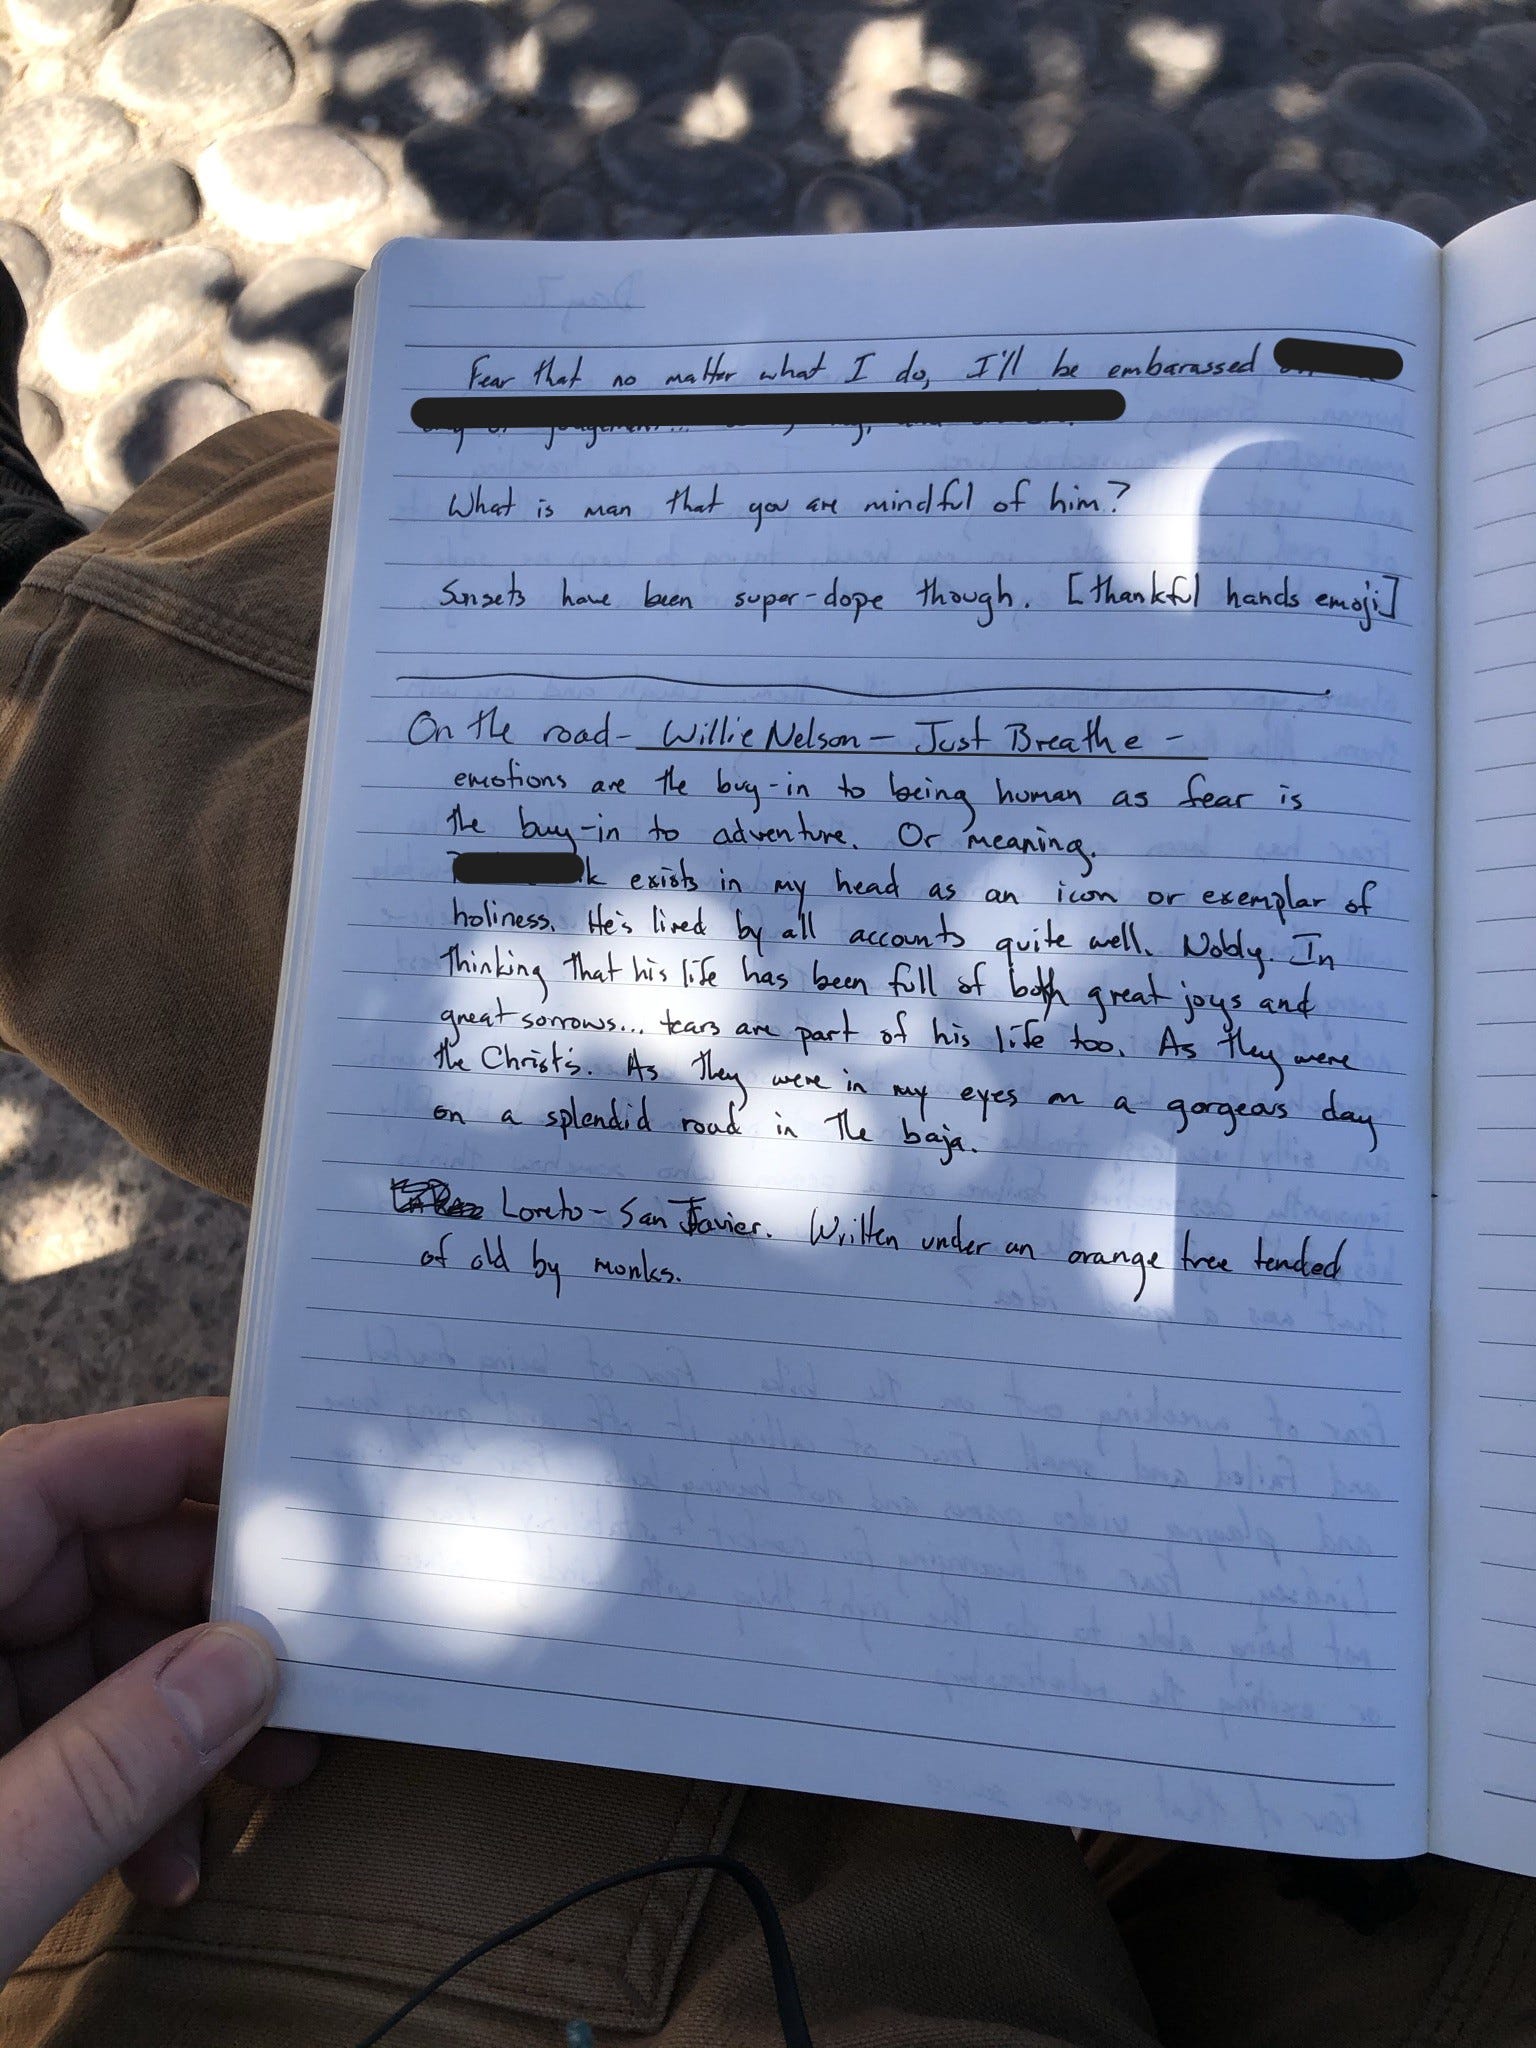 Fear that no matter what I do, I'll be embarassed
What is man that you are mindful of him?
Sunsets have been super-dope though. [thankful hands emoji]
On the road - Willie Nelson - Just Breathe -
emotions are the buy-in to being human as fear is
the buy-in to adventure. Or meaning.
exists in my head as an icon or exemplar of
holiness. He's lived by all accounts quite well. Nobly. In
thinking that his life has been full of both great joys and
great sorrows... tears are part of his life too. As they were
the Christ's. As they were in my eyes on a gorgeous day
on a splendid road in the baja.
Loreto - San Javier. Written under an orange tree tended
of old by monks.